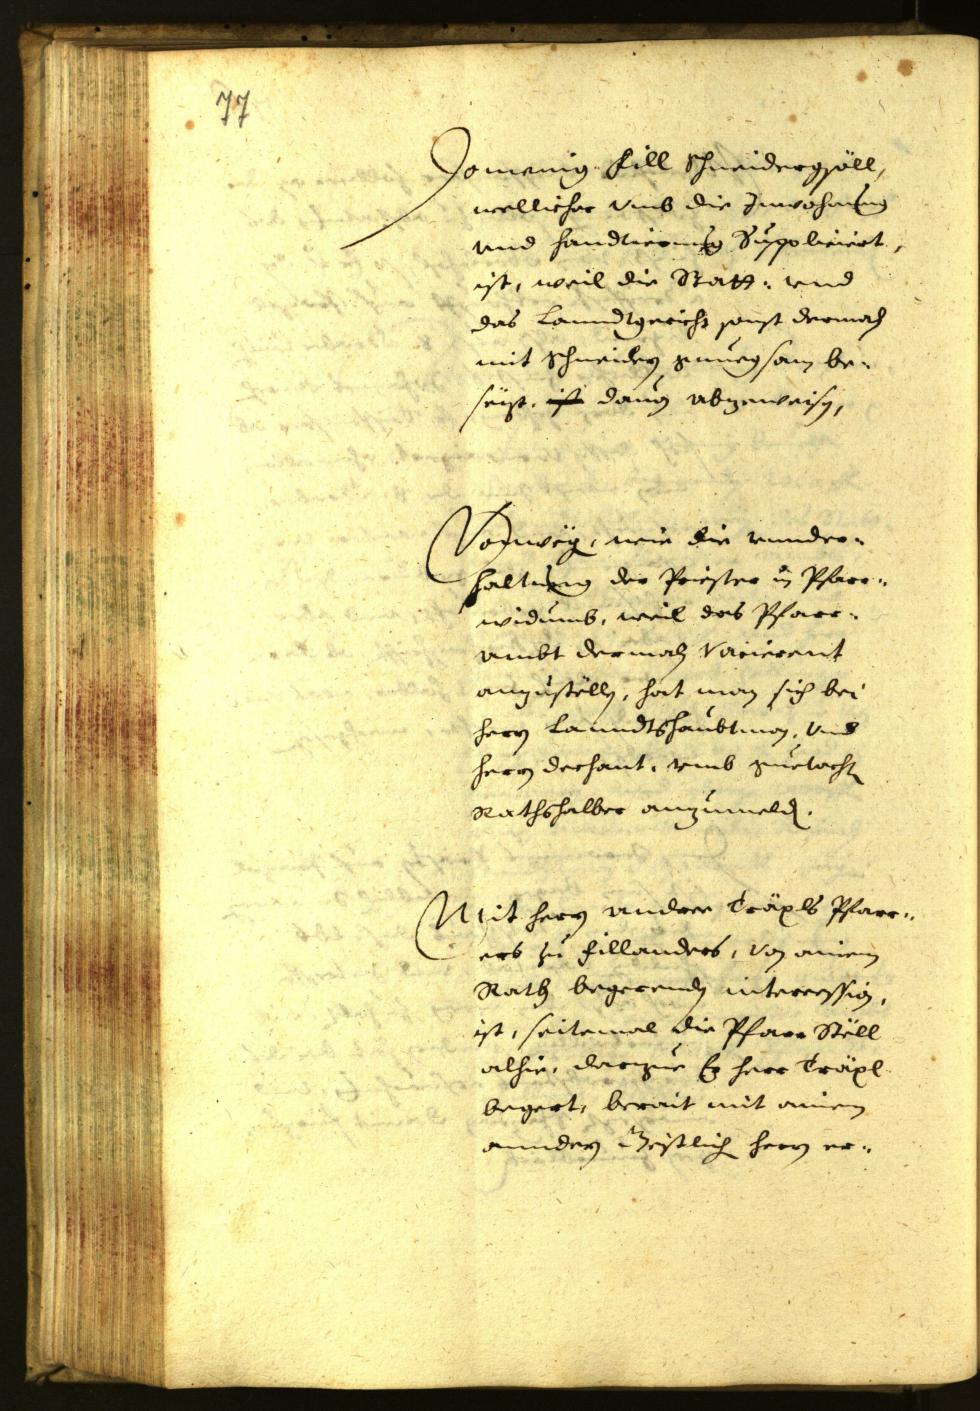 77
Domenig Fill Schneidergsöll,
wellicher vmb die Inwohnung
vnd handtierung Suppliciert,
ist, weil die Statt: vnd
das Lanndtgericht sonst dermaln
mit Schneidern gnuegsam be-
sezt, ist dauon abzuweisen,
wie die vnnder-
haltung der Priester in Pfarr-
widumb, weil das Pfarr-
ambt dermaln Vacierent
anzustölln, hat man sich bei
herrn Lanndtshaubtman, vnd
herrn dechant, vmb guetacht
Rathshalber anzumelden.
Mit herrn Andree Tröxls Pfarr-
ers zu Fillanders, von ainem
Rath begerenden intercession,
ist, seitemal die Pfarr Stöll
alhie, darzue Er herr Tröxl
begert, berait mit ainem
anndern Geistlich herrn er-